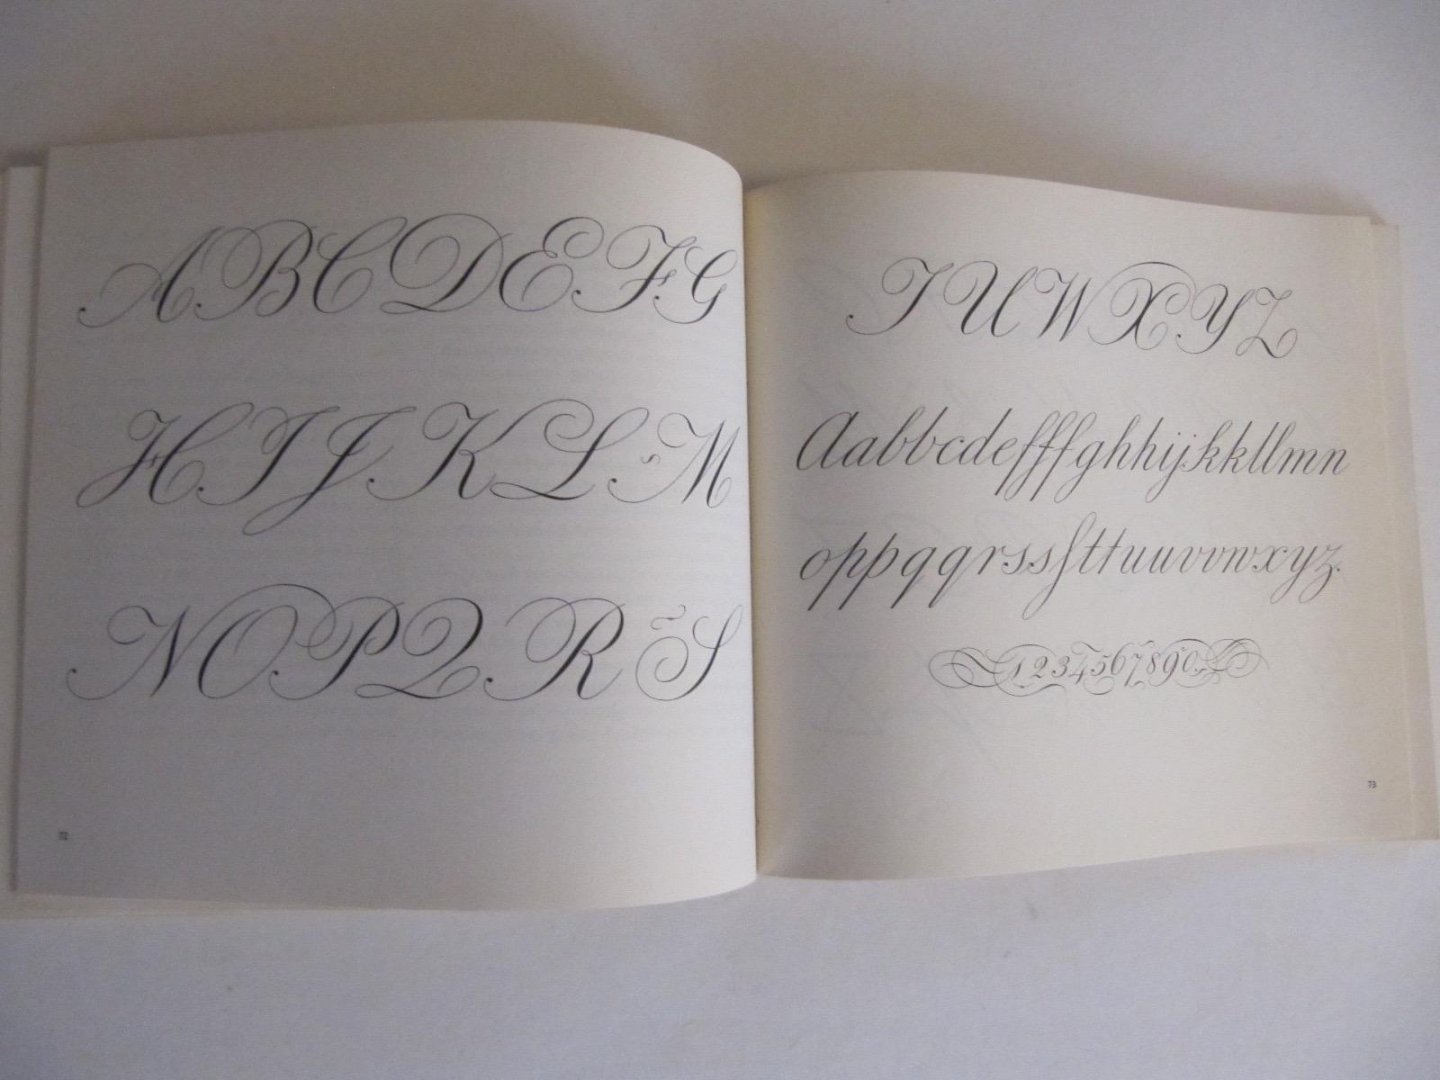 ABCDEFG
HIJKLM
NOPQRS
72
TUWXYZ
Aabbcdefffghhijkkllmn
oppqqrssſttuuvvwxyz.
1234567890
73